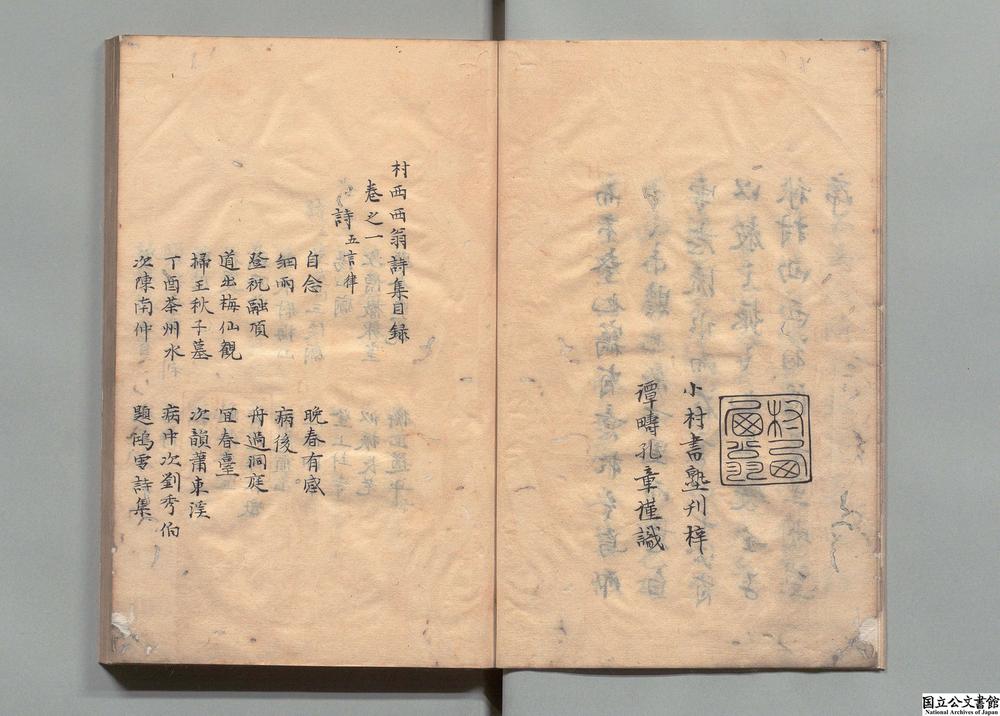 小村書塾刊梓
潭疇孔章謹識
村西西翁詩集目録
卷之一
詩五言律
自念 晚春有感
細雨 病後
登祝融頂 舟過洞庭
道出梅仙觀 宜春臺
掃王秋子墓 次韻蕭東溪
丁酉茶州水 病中次劉秀伯
次陳南仲 題鴻雪詩集
国立公文書館
National Archives of Japan